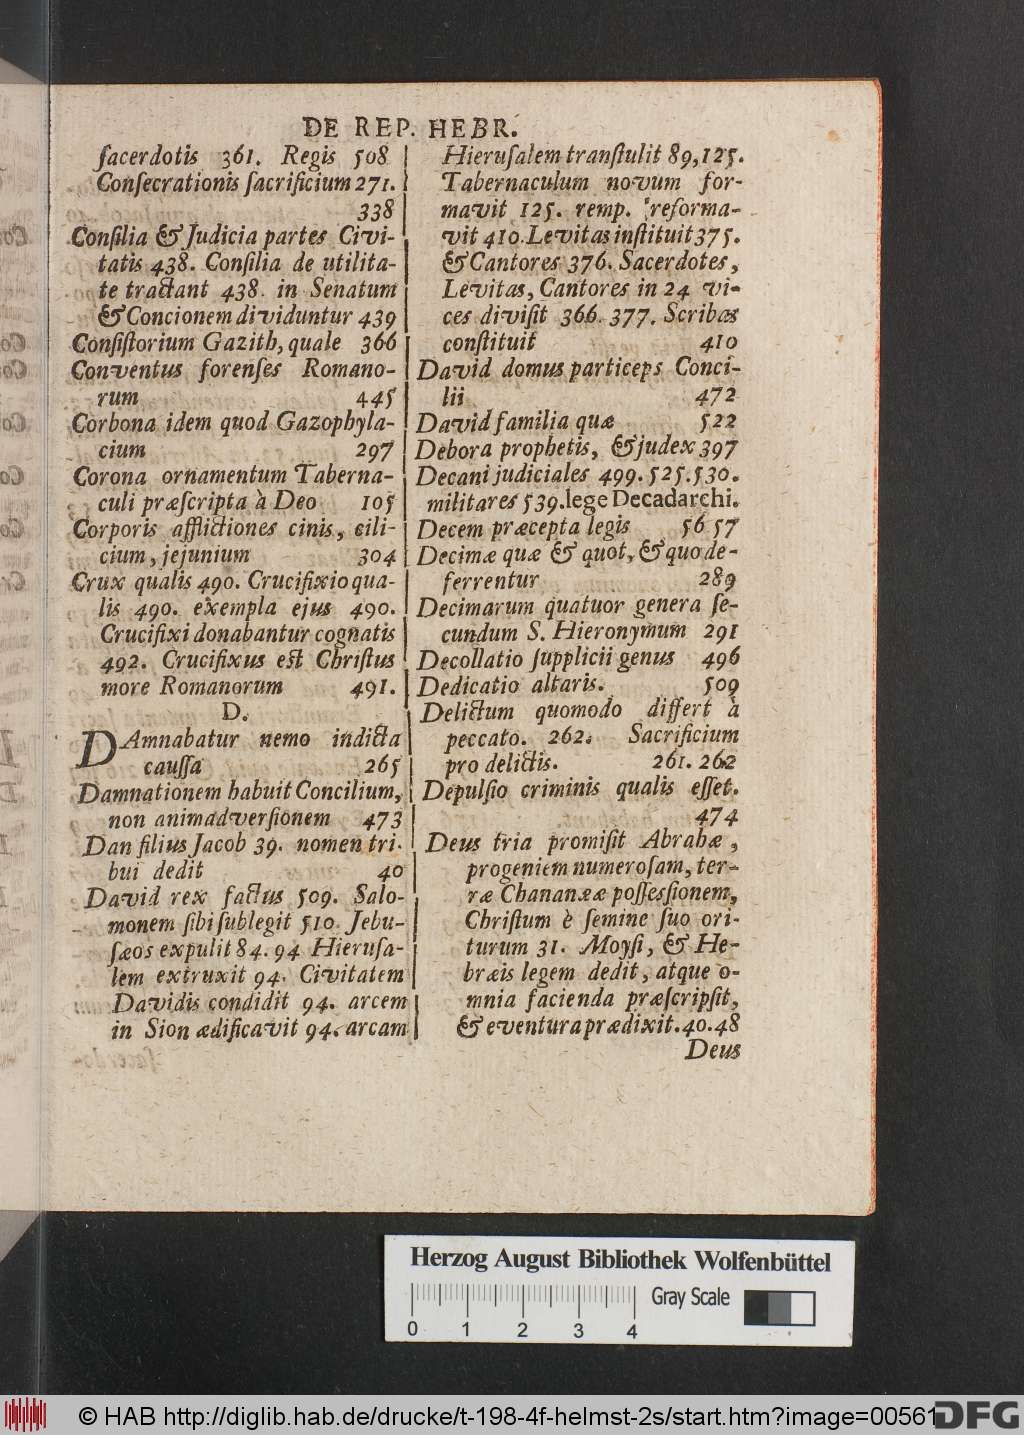 DE REP. HEBR.
ſacerdotis 361. Regis 508
Conſecrationis ſacrificium 271.
338
Conſilia & Judicia partes Civi-
tatis 438. Conſilia de utilita-
te tractant 438. in Senatum
& Concionem dividuntur 439
Conſiſtorium Gazith, quale 366
Conventus forenſes Romano-
rum 445
Corbona idem quod Gazophyla-
cium 297
Corona ornamentum Taberna-
culi præſcripta à Deo 105
Corporis afflictiones cinis, cili-
cium, jejunium 304
Crux qualis 490. Crucifixio qua-
lis 490. exempla ejus 490.
Crucifixi donabantur cognatis
492. Crucifixus est Chriſtus
more Romanorum 491.
D.
DAmnabatur nemo indicta
cauſſa 265
Damnationem habuit Concilium,
non animadverſionem 473
Dan filius Jacob 39. nomen tri-
bui dedit 40
David rex factus 509. Salo-
monem ſibi ſublegit 510. Jebu-
ſæos expulit 84. 94 Hieruſa-
lem extruxit 94. Civitatem
Davidis condidit 94. arcem
in Sion ædificavit 94. arcam
Hieruſalem tranſtulit 89, 125.
Tabernaculum novum for-
mavit 125. remp. reforma-
vit 410. Levitas inſtituit 375.
& Cantores 376. Sacerdotes,
Levitas, Cantores in 24 vi-
ces diviſit 366. 377. Scribas
conſtituit 410
David domus particeps Conci-
lii 472
David familia quæ 522
Debora prophetis, & judex 397
Decani judiciales 499. 525. 530.
militares 539. lege Decadarchi.
Decem præcepta legis 56 57
Decimæ quæ & quot, & quo de-
ferrentur 289
Decimarum quatuor genera ſe-
cundum S. Hieronymum 291
Decollatio ſupplicii genus 496
Dedicatio altaris. 509
Delictum quomodo differt à
peccato. 262. Sacrificium
pro delictis. 261. 262
Depulſio criminis qualis eſſet.
474
Deus tria promiſit Abrahæ,
progeniem numeroſam, ter-
ræ Chananææ poſſeſsionem,
Chriſtum è ſemine ſuo ori-
turum 31. Moyſi, & He-
bræis legem dedit, atque o-
mnia facienda præſcripſit,
& eventura prædixit. 40. 48
Deus
Herzog August Bibliothek Wolfenbüttel
Gray Scale
0 1 2 3 4
© HAB http://diglib.hab.de/drucke/t-198-4f-helmst-2s/start.htm?image=00561
DFG